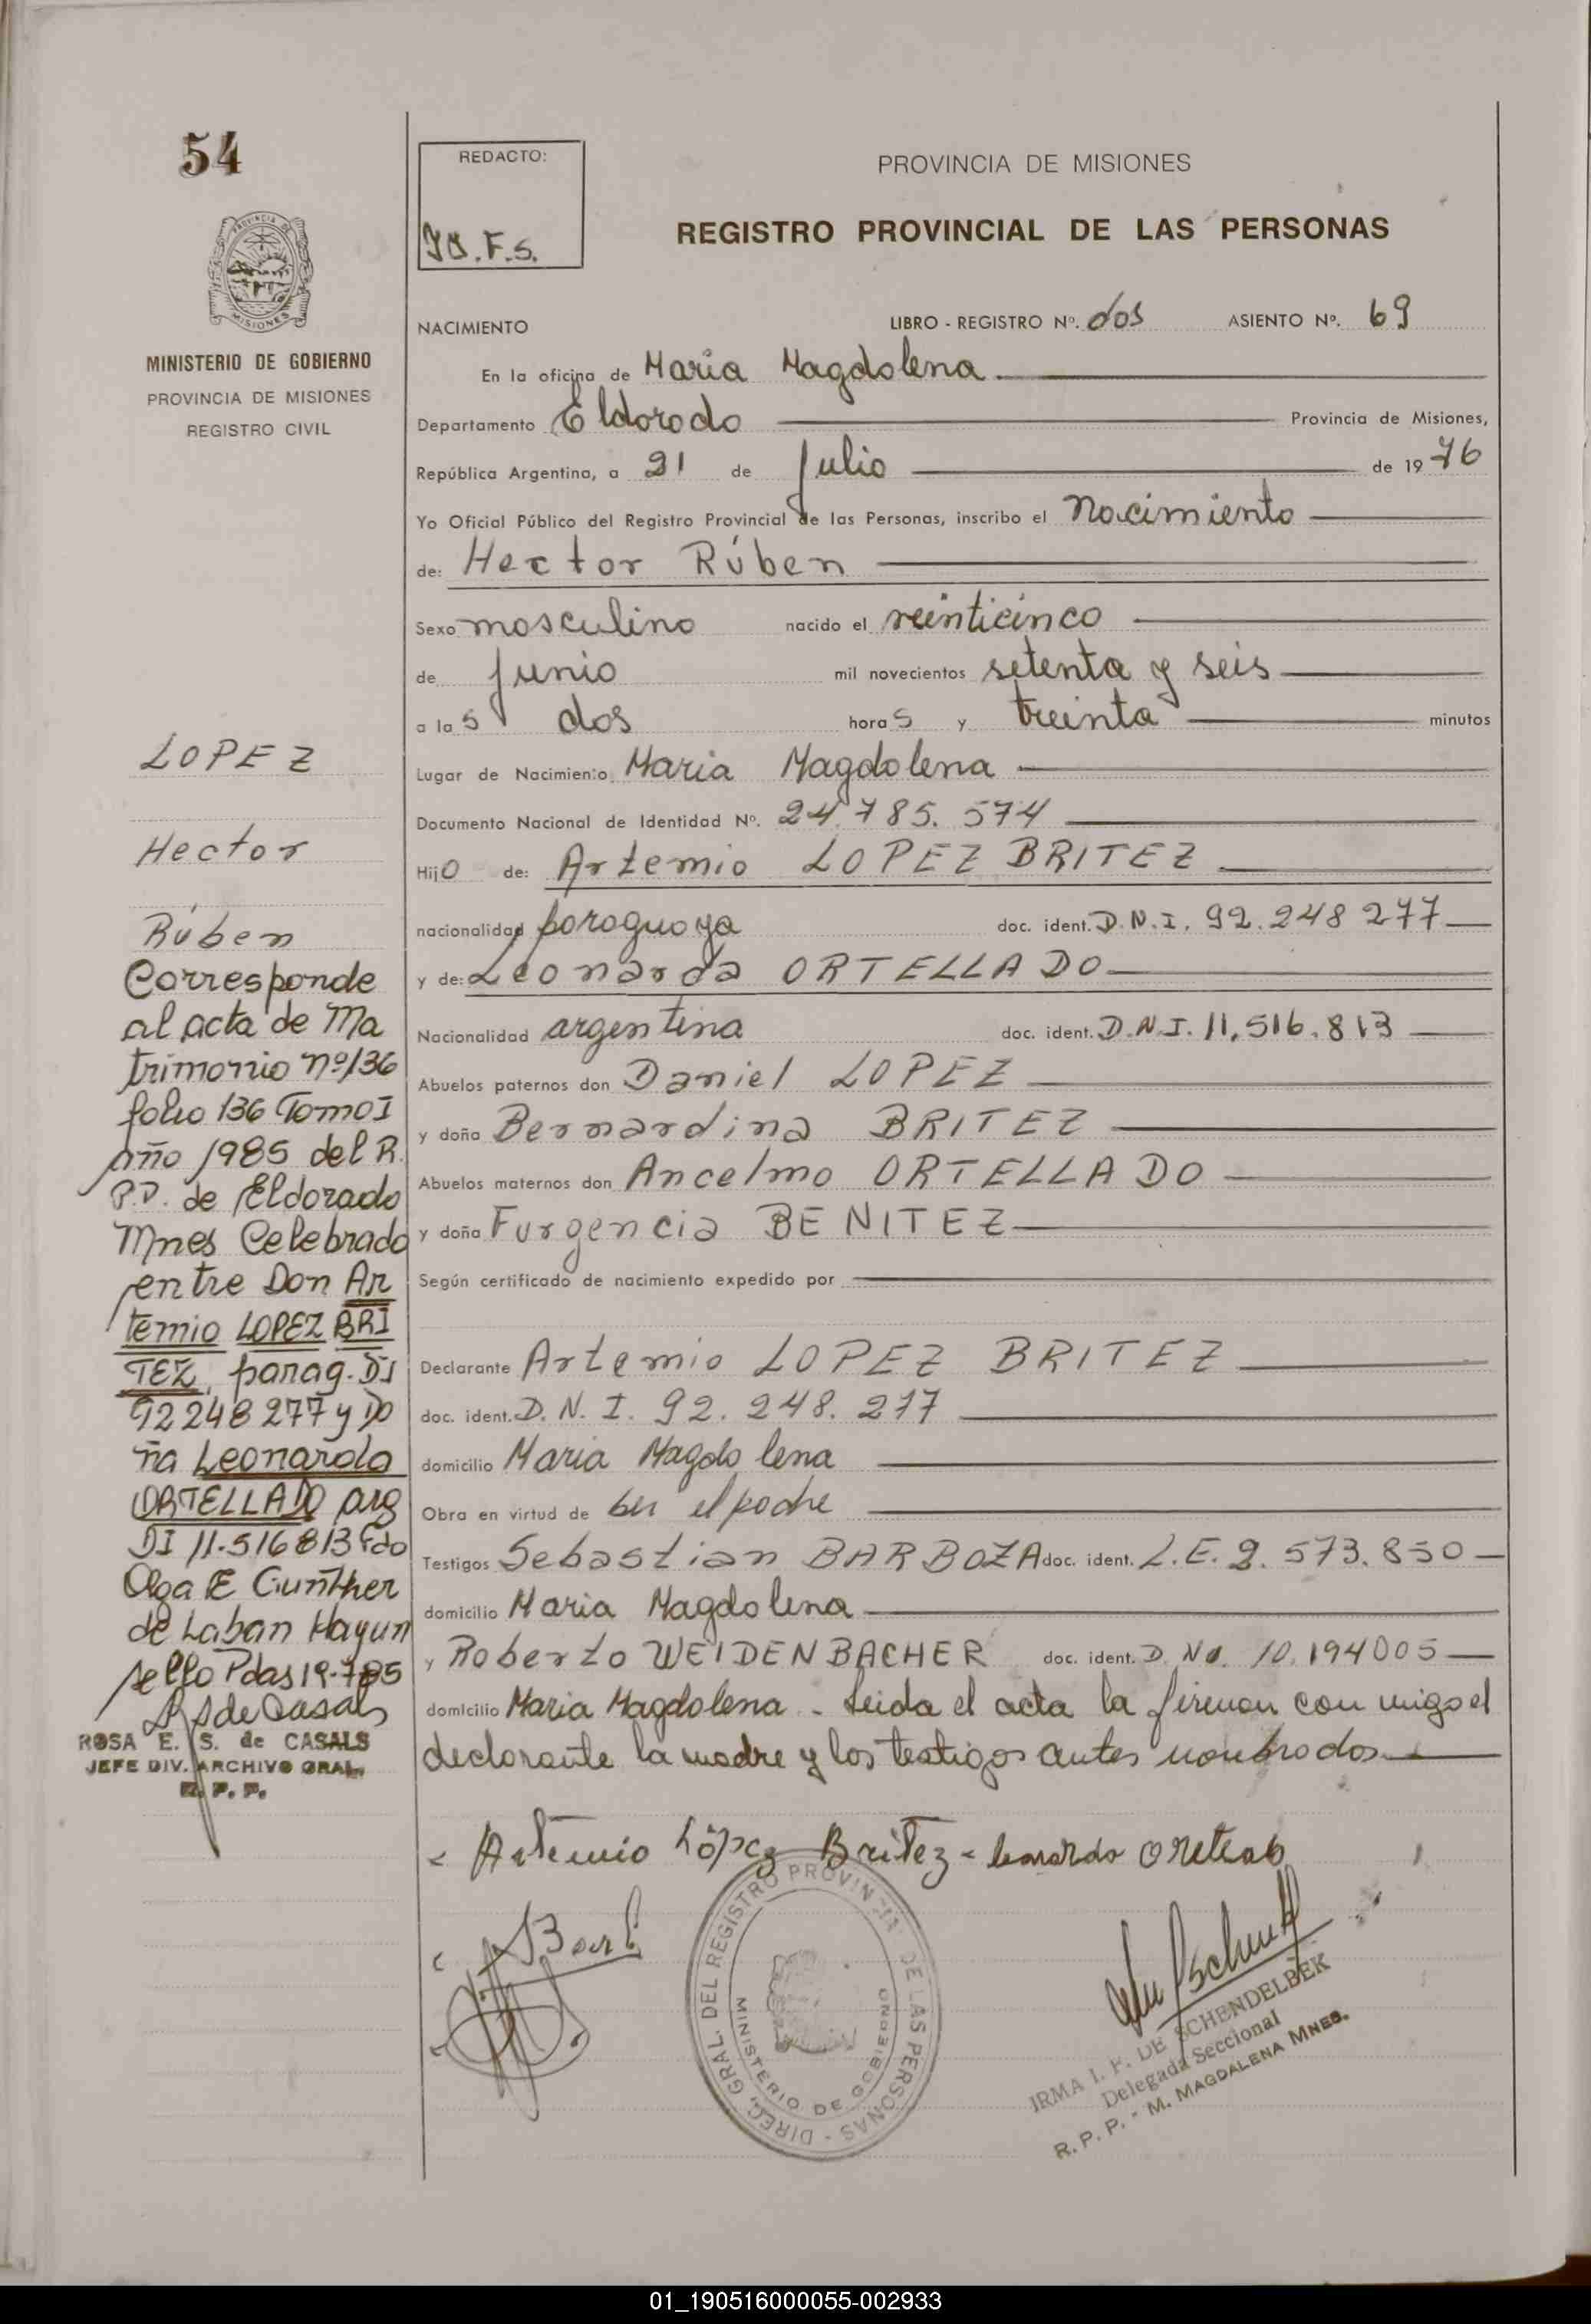 54
MINISTERIO DE GOBIERNO
PROVINCIA DE MISIONES
REGISTRO CIVIL
REDACTO:
F.S.
PROVINCIA DE MISIONES
REGISTRO PROVINCIAL DE LAS PERSONAS
NACIMIENTO LIBRO - REGISTRO Nº. dos ASIENTO Nº. 69
En la oficina de Maria Magdalena
Departamento Eldorado Provincia de Misiones,
República Argentina, a 21 de Julio de 1976
Yo Oficial Público del Registro Provincial de las Personas, inscribo el Nacimiento
de: Hector Rúben
Sexo masculino nacido el veinticinco
de junio mil novecientos setenta y seis
a las dos horas y treinta minutos
Lugar de Nacimiento Maria Magdalena
Documento Nacional de Identidad Nº. 24.785.574
Hijo de: Artemio LOPEZ BRITEZ
nacionalidad paraguaya doc. ident. D.N.I. 92.248 277
y de: Leonarda ORTELLADO
Nacionalidad argentina doc. ident. D.N.I. 11.516.813
Abuelos paternos don Daniel LOPEZ
y doña Bernardina BRITEZ
Abuelos maternos don Ancelmo ORTELLADO
y doña Furgencia BENITEZ
Según certificado de nacimiento expedido por
Declarante Artemio LOPEZ BRITEZ
doc. ident. D.N.I. 92.248.277
domicilio Maria Magdalena
Obra en virtud de ser el padre
Testigos Sebastian BARBOZA doc. ident. L.E. 2.573.850
domicilio Maria Magdalena
y Roberto WEIDENBACHER doc. ident. D.N.I. 10.194005
domicilio Maria Magdalena - Leida el acta la firman con migo el
declarante la madre y los testigos antes nombrados
Artemio López Britez - Leonarda
LOPEZ
Hector
Rúben
Corresponde
al acta de Ma
trimonio nº 136
folio 136 Tomo I
año 1985 del R.
P.P. de Eldorado
Mnes Celebrado
entre Don Ar
temio LOPEZ BRI
TEZ, parag. DI
92248277 y Do
ña Leonarda
ORTELLADO arg
DI 11.516813 Fdo
Olga E Gunther
de Laban Hayun
sello Pdas 19-7-85
ROSA E. S. de CASALS
JEFE DIV. ARCHIVO GRAL.
R. P. P.
DIREC. GRAL. DEL REGISTRO PROVINCIAL DE LAS PERSONAS
MINISTERIO DE GOBIERNO
IRMA I. F. DE SCHENDELBEK
Delegada Seccional
R. P. P. - M. MAGDALENA MNES.
01_190516000055-002933